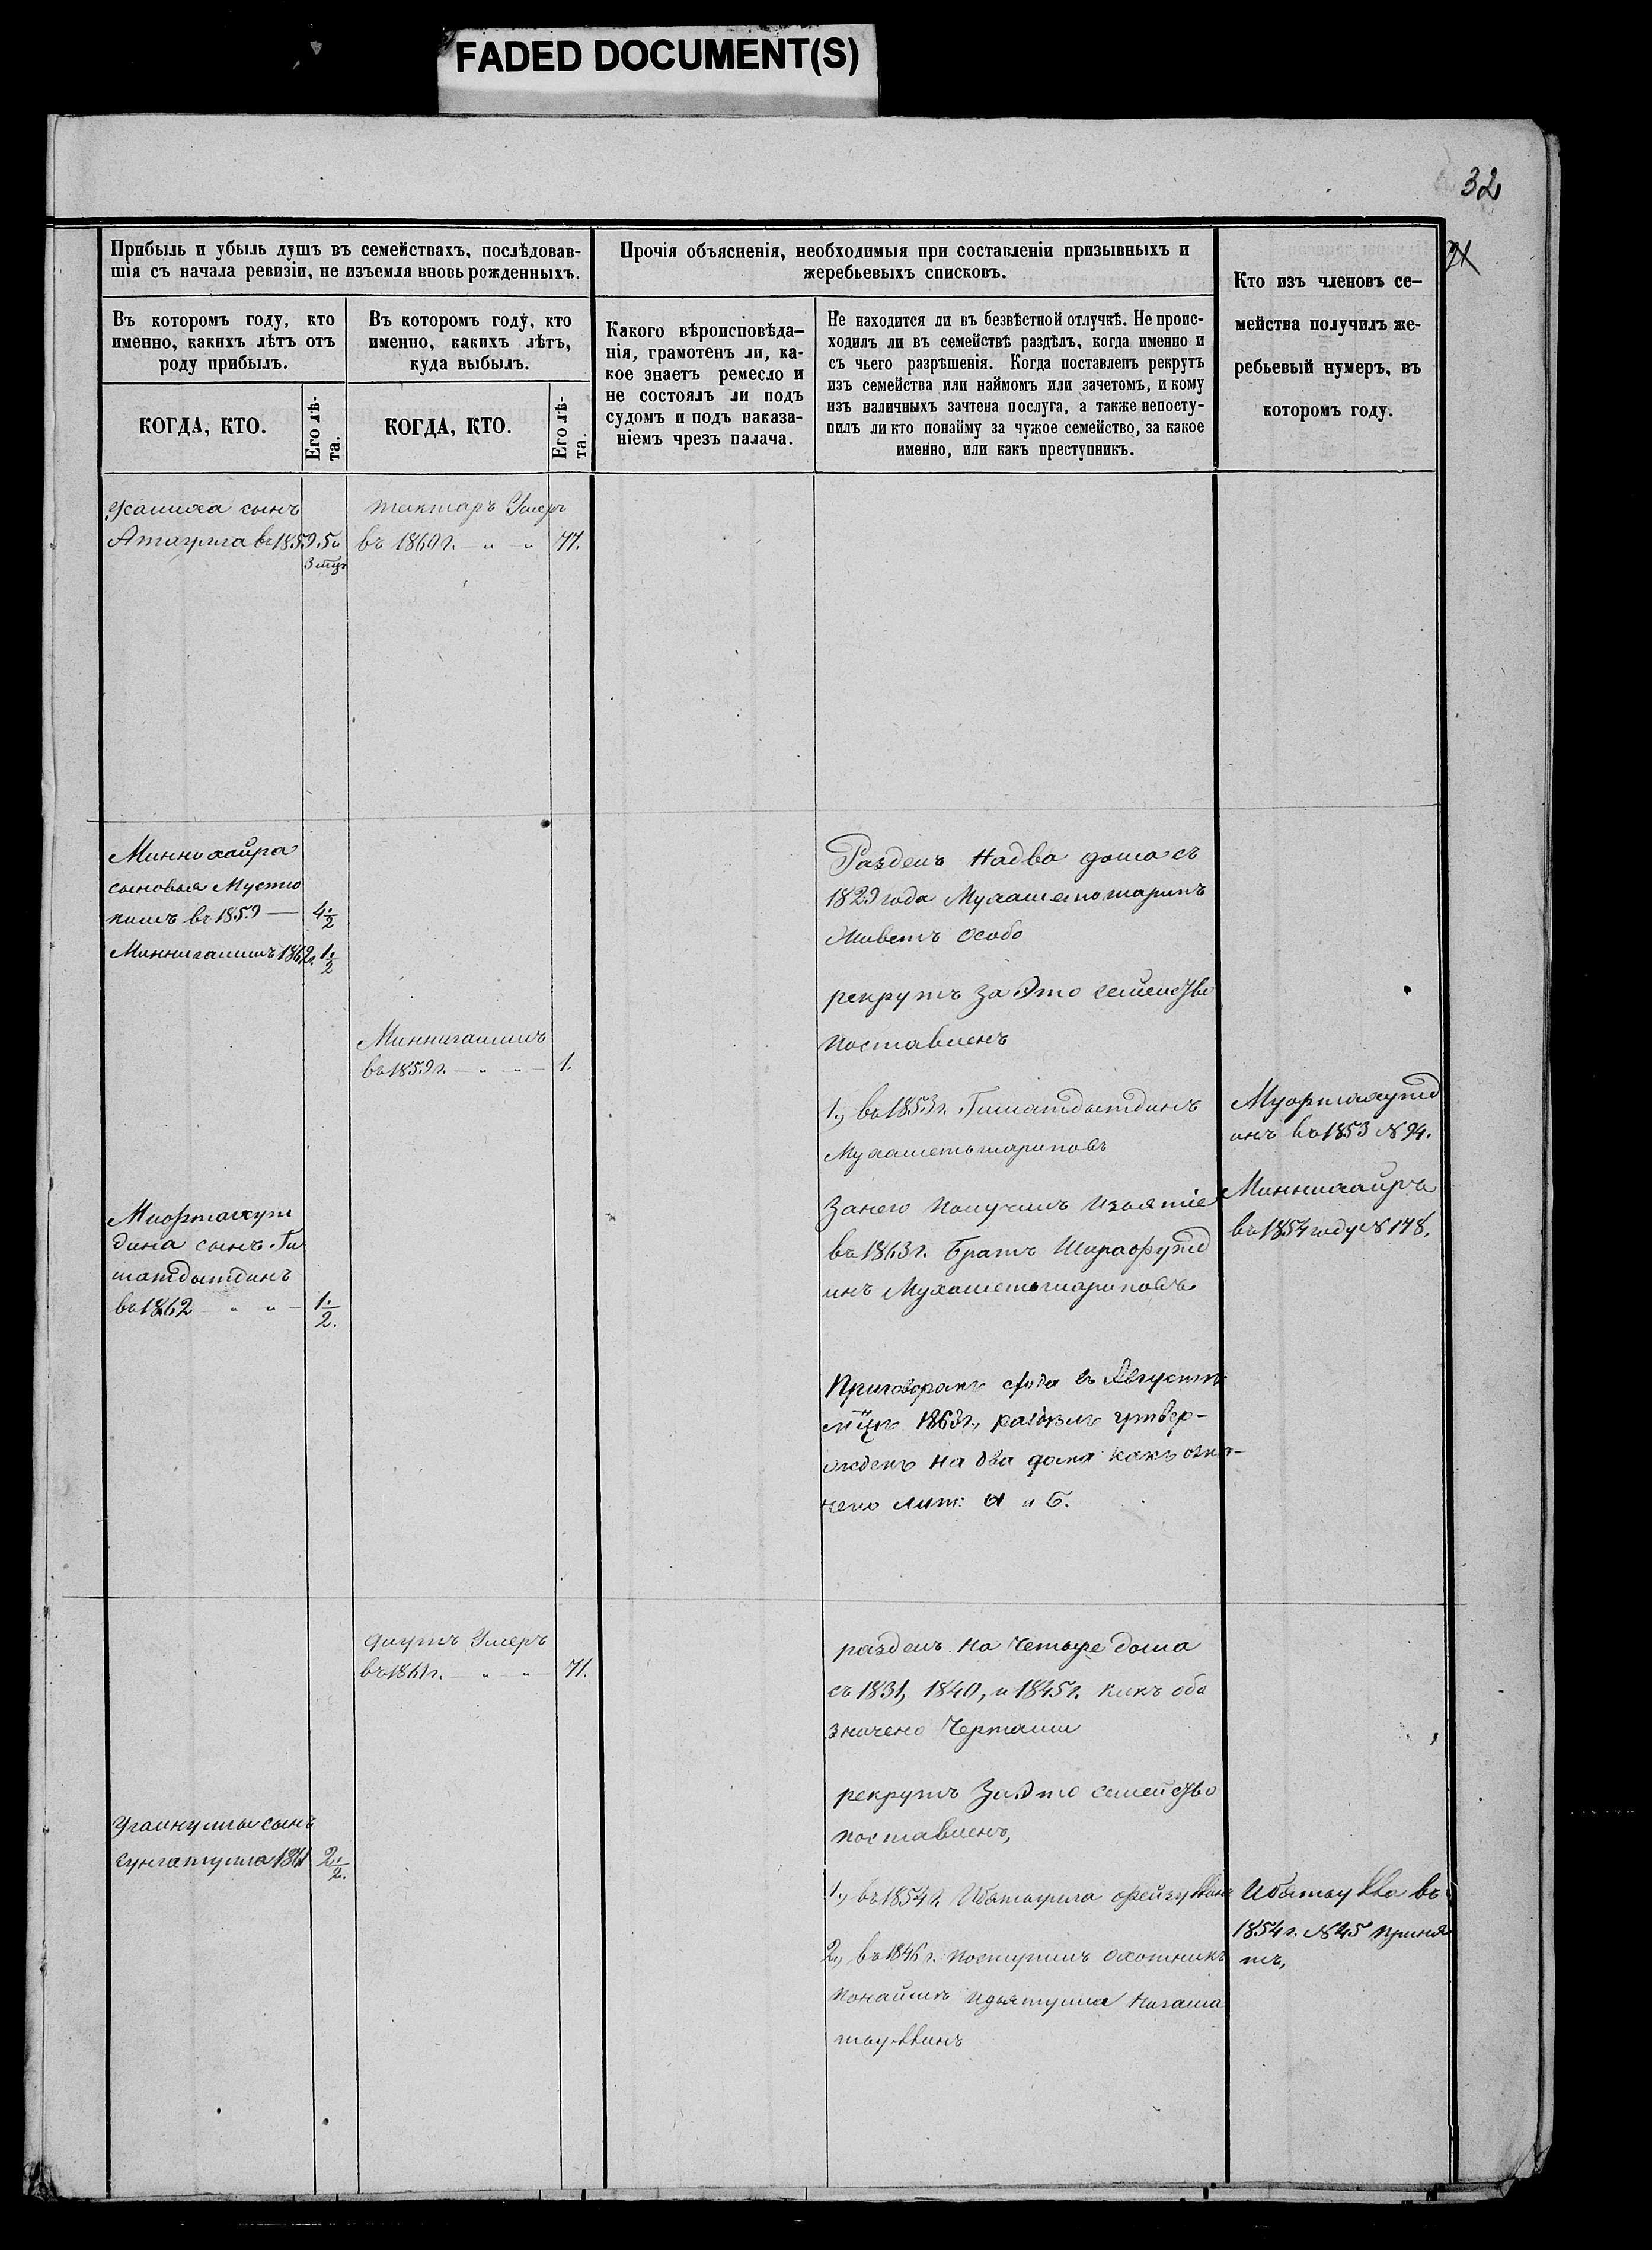 FADED DOCUMENT(S)
32
21
Прибыль и убыль душъ въ семействахъ, послѣдовав-
шія съ начала ревизіи, не изъемля вновь рожденныхъ.
Въ которомъ году, кто
именно, какихъ лѣтъ отъ
роду прибылъ.
КОГДА, КТО.
Его лѣ-
та.
Въ которомъ году, кто
именно, какихъ лѣтъ,
куда выбылъ.
КОГДА, КТО.
Его лѣ-
та.
Прочія объясненія, необходимыя при составленіи призывныхъ и
жеребьевыхъ списковъ.
Какого вѣроисповѣда-
нія, грамотенъ ли, ка-
кое знаетъ ремесло и
не состоялъ ли подъ
судомъ и подъ наказа-
ніемъ чрезъ палача.
Не находится ли въ безвѣстной отлучкѣ. Не проис-
ходилъ ли въ семействѣ раздѣлъ, когда именно и
съ чьего разрѣшенія. Когда поставленъ рекрутъ
изъ семейства или наймомъ или зачетомъ, и кому
изъ наличныхъ зачтена послуга, а также непосту-
пилъ ли кто понайму за чужое семейство, за какое
именно, или какъ преступникъ.
Кто изъ членовъ се-
мейства получилъ же-
ребьевый нумеръ, въ
которомъ году.
сынъ
въ 1859. 5 и
Умеръ
въ 1860 г. " " 77.
Миннихайра
сыновья Мусто
кимъ въ 1859 — 4 1/2
1862 г. 1 1/2
Миннигалимъ
въ 1859 г. " " 1.
дина сынъ Ги
матдытдинъ
въ 1862 " " 1 1/2.
Разделъ Надва дома съ
1829 года Мухаметошарипъ
Живетъ Особо
рекрутъ За Это семейство
поставленъ
1., въ 1853 г. Гиматдытдинъ
Мухаметошариповъ
Занего Получилъ Изъятіе
въ 1863 г. Братъ Шарафутд
инъ Мухаметошариповъ
Приговоромъ схода въ Августѣ
мцѣ 1863 г., раздѣлъ утвер-
жденъ на два дома какъ озна-
чено лит: А и Б.
въ 1853 № 94.
Миннихайръ
въ 1854 году № 178.
Умеръ
въ 1861 г. " " 71.
сынъ
1861 2 1/2.
разделъ на Четыре дома
съ 1831, 1840, и 1845 г. какъ обо
значено Чертами
рекрутъ За Это семейство
поставленъ,
1., въ 1854 г.
2., въ 1846 г. поступилъ охотникъ
понайму
въ
1854 г. № 45 приня
тъ,